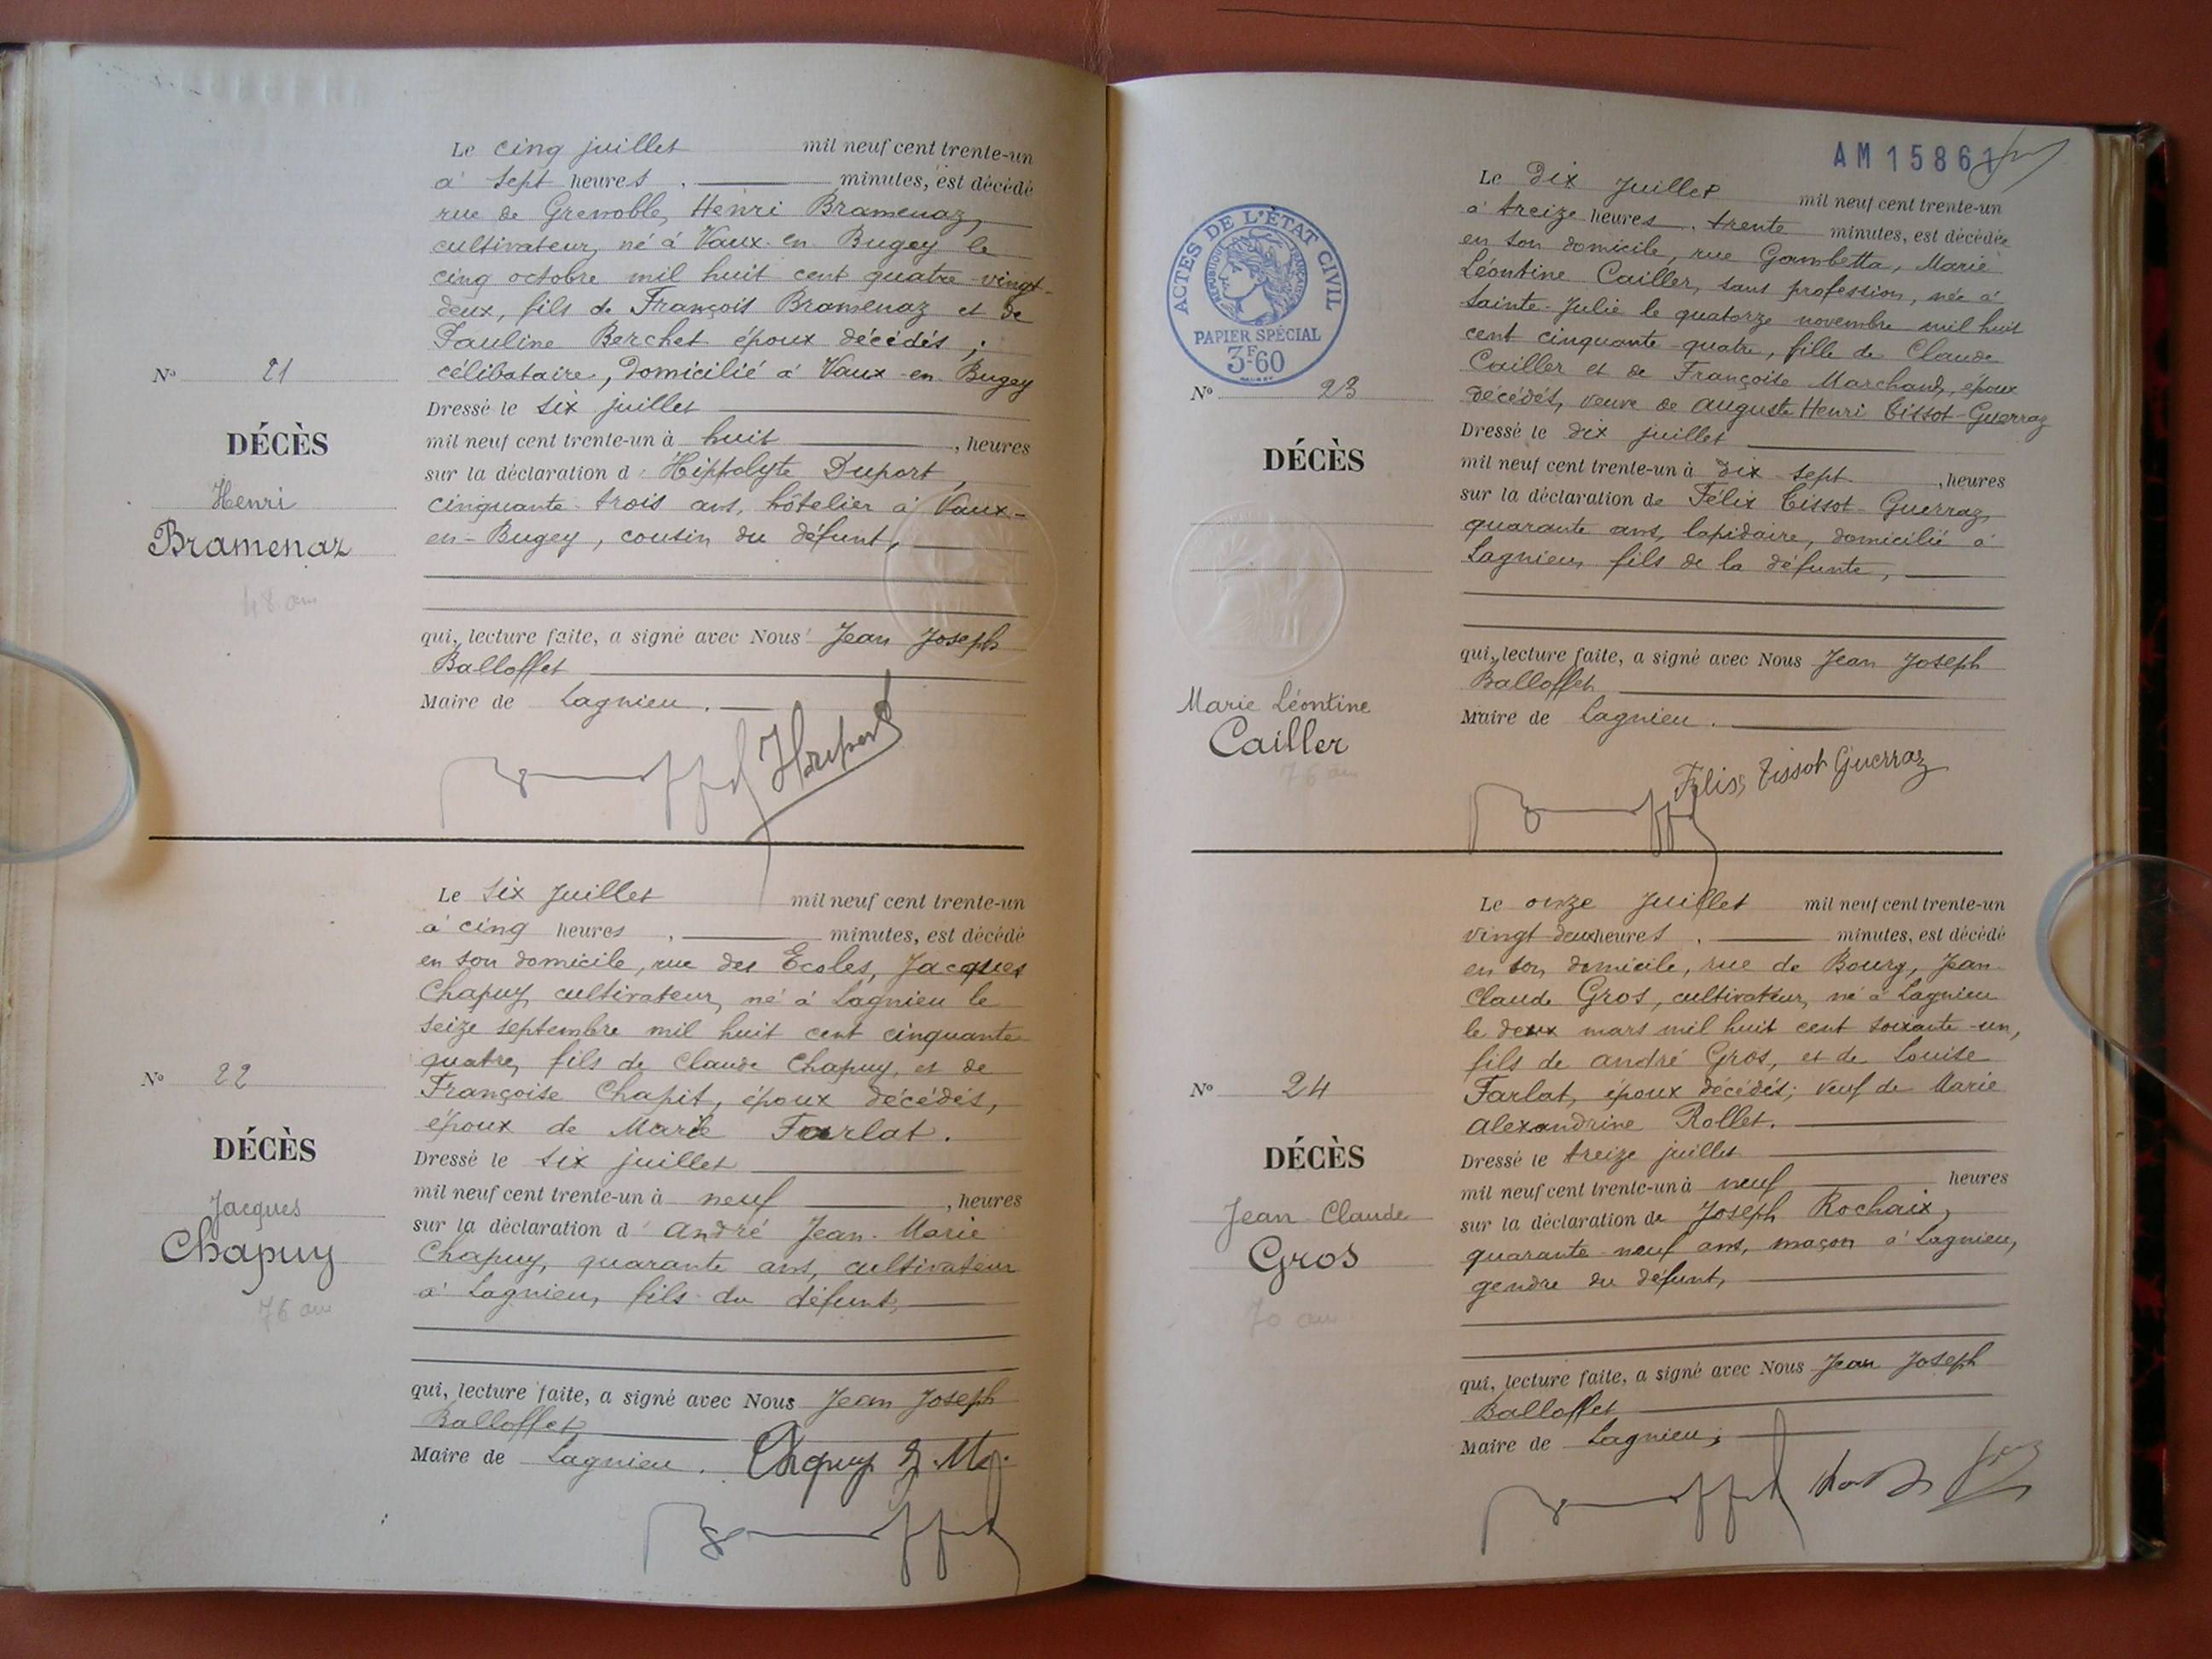 Le cinq juillet mil neuf cent trente-un
à sept heures, minutes, est décédé
rue de Grenoble, Henri Bramenaz,
cultivateur, né à Vaux-en-Bugey le
cinq octobre mil huit cent quatre-vingt-
deux, fils de François Bramenaz et de
Pauline Berchet époux décédés ;
célibataire, domicilié à Vaux-en-Bugey
Dressé le six juillet
mil neuf cent trente-un à huit, heures
sur la déclaration d' Hippolyte Duport,
cinquante-trois ans, hôtelier à Vaux-
en-Bugey, cousin du défunt,
qui, lecture faite, a signé avec Nous Jean Joseph
Balloffet
Maire de Lagnieu.
No 21
DÉCÈS
Henri
Bramenaz
48 ans
Le six Juillet mil neuf cent trente-un
à cinq heures, minutes, est décédé
en son domicile, rue des Ecoles, Jacques
Chapuy cultivateur, né à Lagnieu le
seize septembre mil huit cent cinquante
quatre, fils de Claude Chapuy, et de
Françoise Chapit, époux décédés,
époux de Marie Farlat.
Dressé le six juillet
mil neuf cent trente-un à neuf, heures
sur la déclaration d' André Jean-Marie
Chapuy, quarante ans, cultivateur
à Lagnieu, fils du défunt,
qui, lecture faite, a signé avec Nous Jean Joseph
Balloffet
Maire de Lagnieu.
Chapuy J. M.
No 22
DÉCÈS
Jacques
Chapuy
76 ans
AM 15861
ACTES DE L'ÉTAT CIVIL
RÉPUBLIQUE FRANÇAISE
PAPIER SPÉCIAL
3F60
Le Dix Juillet mil neuf cent trente-un
à treize heures, trente minutes, est décédée
en son domicile, rue Gambetta, Marie
Léontine Cailler, sans profession, née à
Sainte-Julie le quatorze novembre mil huit
cent cinquante-quatre, fille de Claude
Cailler et de Françoise Marchand, époux
décédés, veuve de Auguste Henri Tissot-Guerraz
Dressé le dix juillet
mil neuf cent trente-un à dix-sept, heures
sur la déclaration de Félix Tissot-Guerraz,
quarante ans, lapidaire, domicilié à
Lagnieu, fils de la défunte,
qui, lecture faite, a signé avec Nous Jean Joseph
Balloffet
Maire de Lagnieu.
Félix Tissot Guerraz
No 23
DÉCÈS
Marie Léontine
Cailler
76 ans
Le onze Juillet mil neuf cent trente-un
vingt-deux heures, minutes, est décédé
en son domicile, rue de Bourg, Jean-
Claude Gros, cultivateur, né à Lagnieu
le deux mars mil huit cent soixante-un,
fils de André Gros, et de Louise
Farlat, époux décédés ; veuf de Marie
Alexandrine Rollet.
Dressé le treize juillet
mil neuf cent trente-un à neuf heures
sur la déclaration de Joseph Rochaix,
quarante-neuf ans, maçon à Lagnieu,
gendre du défunt,
qui, lecture faite, a signé avec Nous Jean Joseph
Balloffet
Maire de Lagnieu ;
No 24
DÉCÈS
Jean-Claude
Gros
70 ans